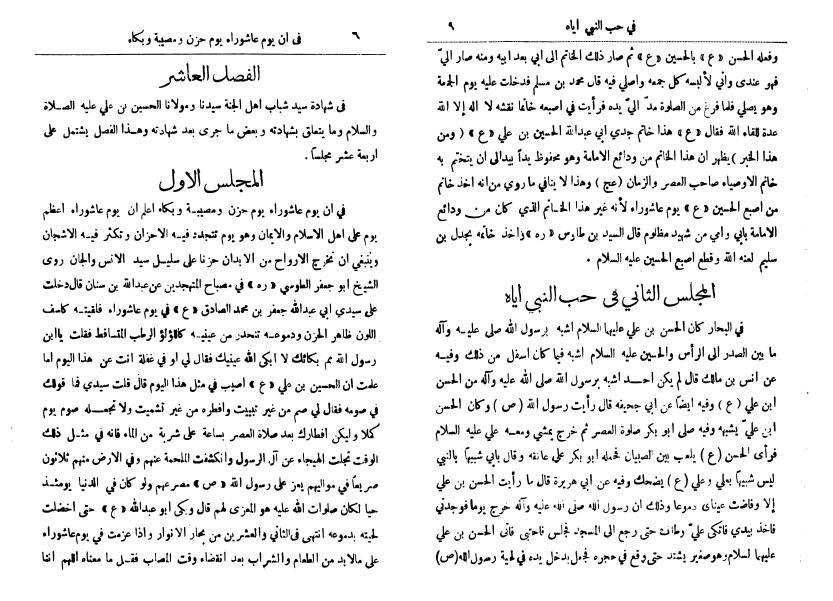 في حب النبي اياه ٩
وفعله الحسن «ع» بالحسين «ع» ثم صار ذلك الخاتم الى ابي بعد ابيه ومنه صار اليّ
فهو عندى واني لألبسه كل جمعه واصلي فيه قال محمد بن مسلم فدخلت عليه يوم الجمعة
وهو يصلي فلما فرغ من الصلوة مدّ اليّ يده فرأيت في اصبعه خاتمًا نقشه لا اله إلا الله
عدة للقاء الله فقال «ع» هذا خاتم جدي ابي عبدالله الحسين بن علي «ع» (ومن
هذا الخبر) يظهر ان هذا الخاتم من ودائع الامامة وهو محفوظ يداً بيدالى ان يتختم به
خاتم الاوصياء صاحب العصر والزمان (عج) وهذا لا ينافي ما روي من انه اخذ خاتم
من اصبع الحسين «ع» يوم عاشوراء لأنه غير هذا الخاتم الذي كان من ودائع
الامامة بابي وامي من شهيد مظلوم قال السيد بن طاوس «ره» واخذ خاتمه بجدل بن
سليم لعنه الله وقطع اصبع الحسين عليه السلام .
المجلس الثاني فى حب النبي اياه
في البحار كان الحسن بن علي عليهما السلام اشبه برسول الله صلى عليه وآله
ما بين الصدر الى الرأس والحسين عليه السلام اشبه فيما كان اسفل من ذلك وفيه
عن انس بن مالك قال لم يكن احد اشبه برسول الله صلى الله عليه وآله من الحسن
ابن علي (ع) وفيه ايضاً عن ابي جحيفه قال رأيت رسول الله (ص) وكان الحسن
ابن عليّ يشبهه وفيه صلى ابو بكر صلوة العصر ثم خرج يمشي ومعه علي عليه السلام
فرأى الحسن (ع) يلعب بين الصبيان فحمله ابو بكر على عاتقه وقال بابي شبيهاً بالنبي
ليس شبيهاً بعلي وعلي (ع) يضحك وفيه عن ابي هريرة قال ما رأيت الحسن بن علي
إلا وفاضت عيناى دموعا وذلك ان رسول الله صلى الله عليه وآله خرج يوما فوجدني
فاخذ بيدي فاتكى عليّ حتى رجع الى المسجد فجلس فاحتبى فاتى الحسن بن علي
عليهما لسلام وهو صغير يشتد حتى وقع في حجره فجعل يدخل يده في لحية رسول الله (ص)
فى ان يوم عاشوراء يوم حزن ومصيبة وبكاء ٦
الفصل العاشر
فى شهادة سيد شباب اهل الجنة سيدنا ومولانا الحسين بن علي عليه الصلاة
والسلام وما يتعلق بشهادته وبعض ما جرى بعد شهادته وهذا الفصل يشتمل على
اربعة عشر مجلساً.
المجلس الاول
في ان يوم عاشوراء يوم حزن ومصيبة وبكاء اعلم ان يوم عاشوراء اعظم
يوم على اهل الاسلام والايمان وهو يوم تتجدد فيه الاحزان وتكثر فيه الاشجان
وينبغي ان تخرج الارواح من الابدان حزنا على سليل سيد الانس والجان روى
الشيخ ابو جعفر الطوسي «ره» في مصباح المتهجدين عن عبدالله بن سنان قال دخلت
على سيدي ابي عبدالله جعفر بن محمد الصادق «ع» في يوم عاشوراء فلقيته كاسف
اللون ظاهر الحزن ودموعه تنحدر من عينيه كاللؤلؤ الرطب المتساقط فقلت ياابن
رسول الله مم بكائك لا ابكى الله عينيك فقال لي او في غفلة انت عن هذا اليوم اما
علمت ان الحسين بن علي «ع» اصيب في مثل هذا اليوم قال قلت سيدي فما قولك
في صومه فقال لي صم من غير تبييت وافطره من غير تشميت ولا تجعله صوم يوم
كملا وليكن افطارك بعد صلاة العصر بساعة على شربة من الماء فانه في مثل ذلك
الوقت تجلت الهيجاء عن آل الرسول وانكشفت الملحمة عنهم وفي الارض منهم ثلاثون
صريعاً في مواليهم يعز على رسول الله «ص» مصرعهم ولو كان في الدنيا يومئذ
حيا لكان صلوات الله عليه هو المعزى لهم قال وبكى ابو عبدالله «ع» حتى اخضلت
لحيته بدموعه انتهى فى الثاني والعشرين من بحار الانوار واذا عزمت في يوم عاشوراء
على مالابد من الطعام والشراب بعد انقضاء وقت المصاب فقل ما معناه اللهم اننا